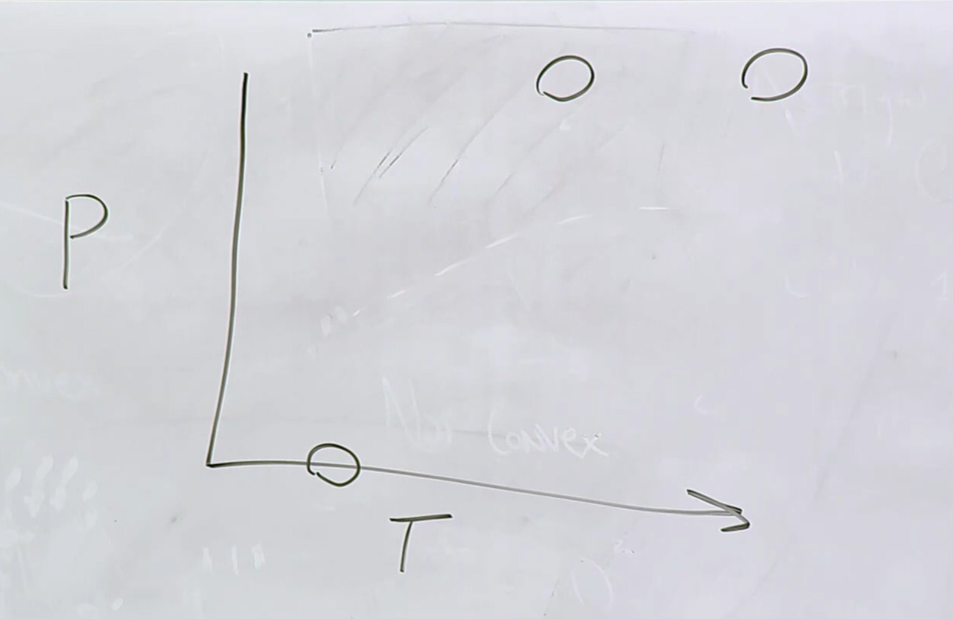 P
Non Convex
T